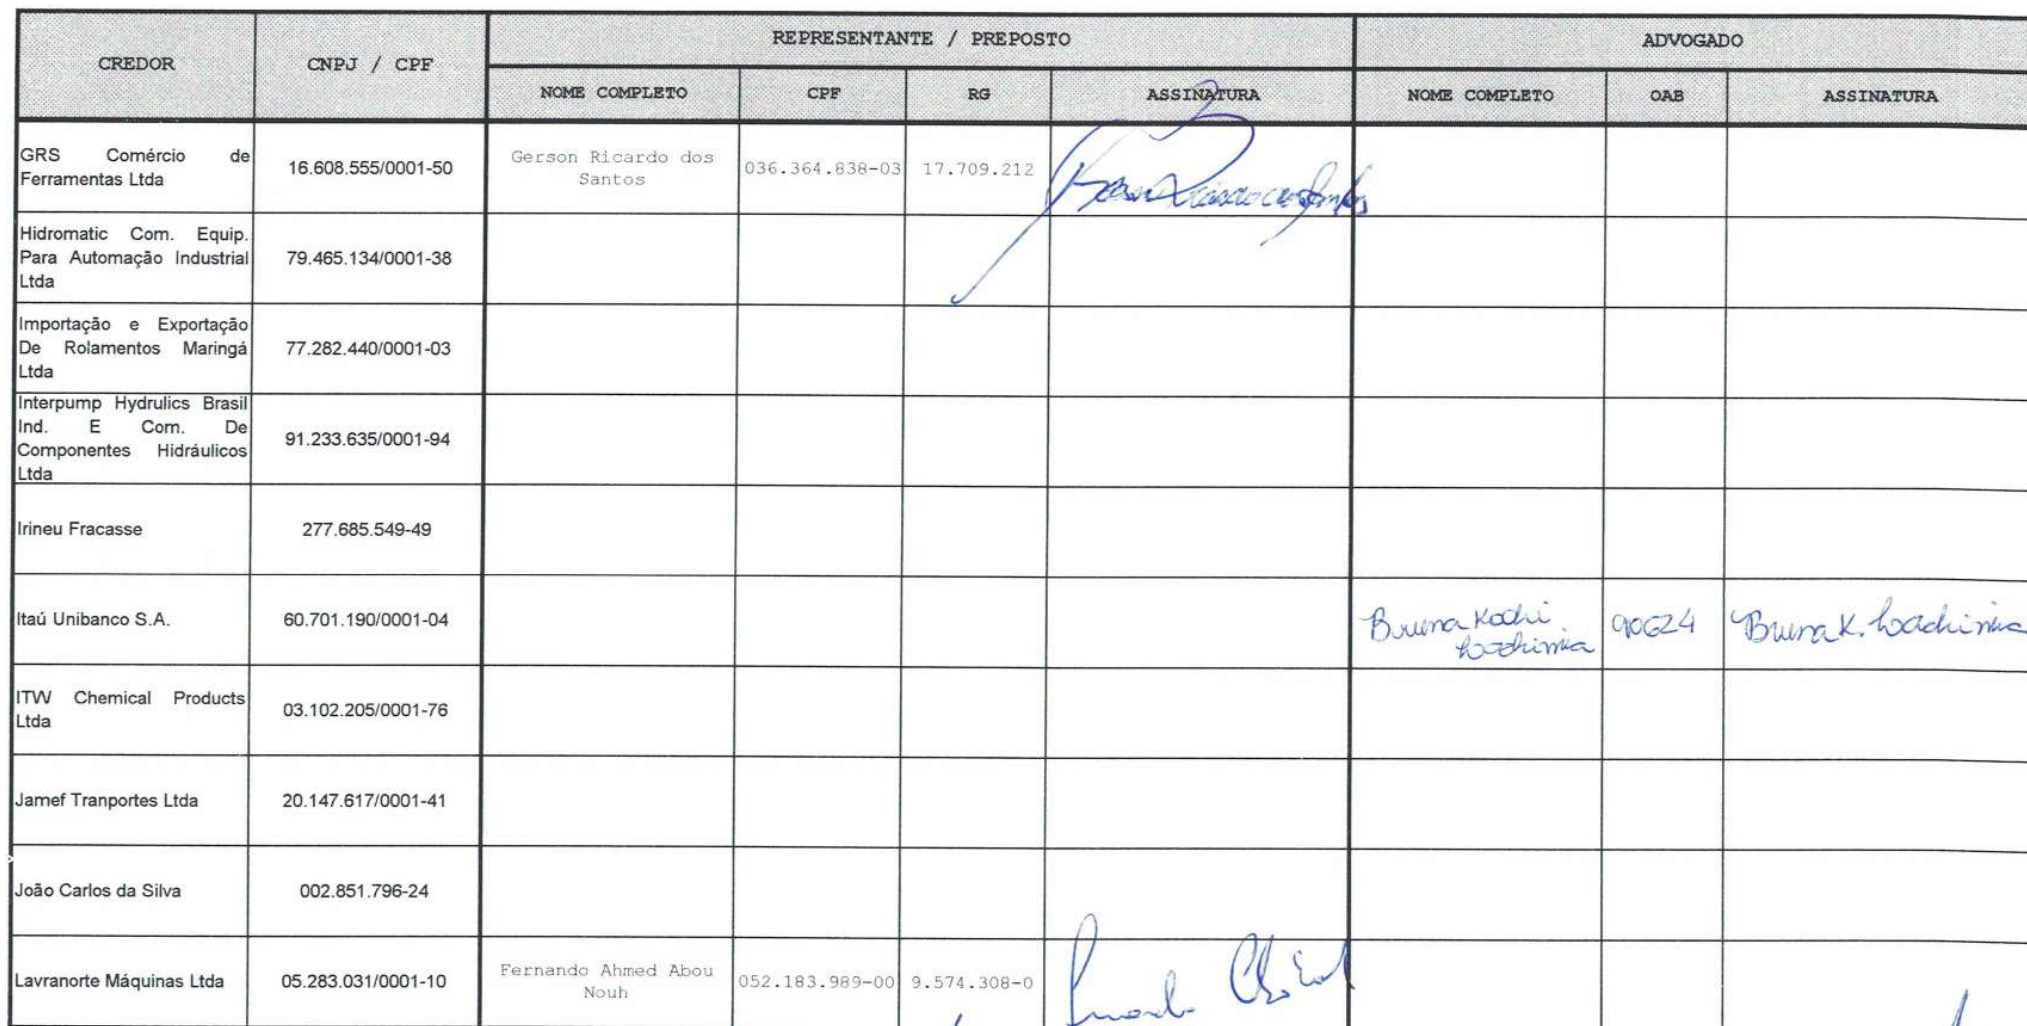 CREDOR
CNPJ / CPF
REPRESENTANTE / PREPOSTO
ADVOGADO
NOME COMPLETO
CPF
RG
ASSINATURA
NOME COMPLETO
OAB
ASSINATURA
GRS Comércio de
Ferramentas Ltda
16.608.555/0001-50
Gerson Ricardo dos
Santos
036.364.838-03
17.709.212
Hidromatic Com. Equip.
Para Automação Industrial
Ltda
79.465.134/0001-38
Importação e Exportação
De Rolamentos Maringá
Ltda
77.282.440/0001-03
Interpump Hydrulics Brasil
Ind. E Com. De
Componentes Hidráulicos
Ltda
91.233.635/0001-94
Irineu Fracasse
277.685.549-49
Itaú Unibanco S.A.
60.701.190/0001-04
Bruna
90624
Bruna K.
ITW Chemical Products
Ltda
03.102.205/0001-76
Jamef Tranportes Ltda
20.147.617/0001-41
João Carlos da Silva
002.851.796-24
Lavranorte Máquinas Ltda
05.283.031/0001-10
Fernando Ahmed Abou
Nouh
052.183.989-00
9.574.308-0